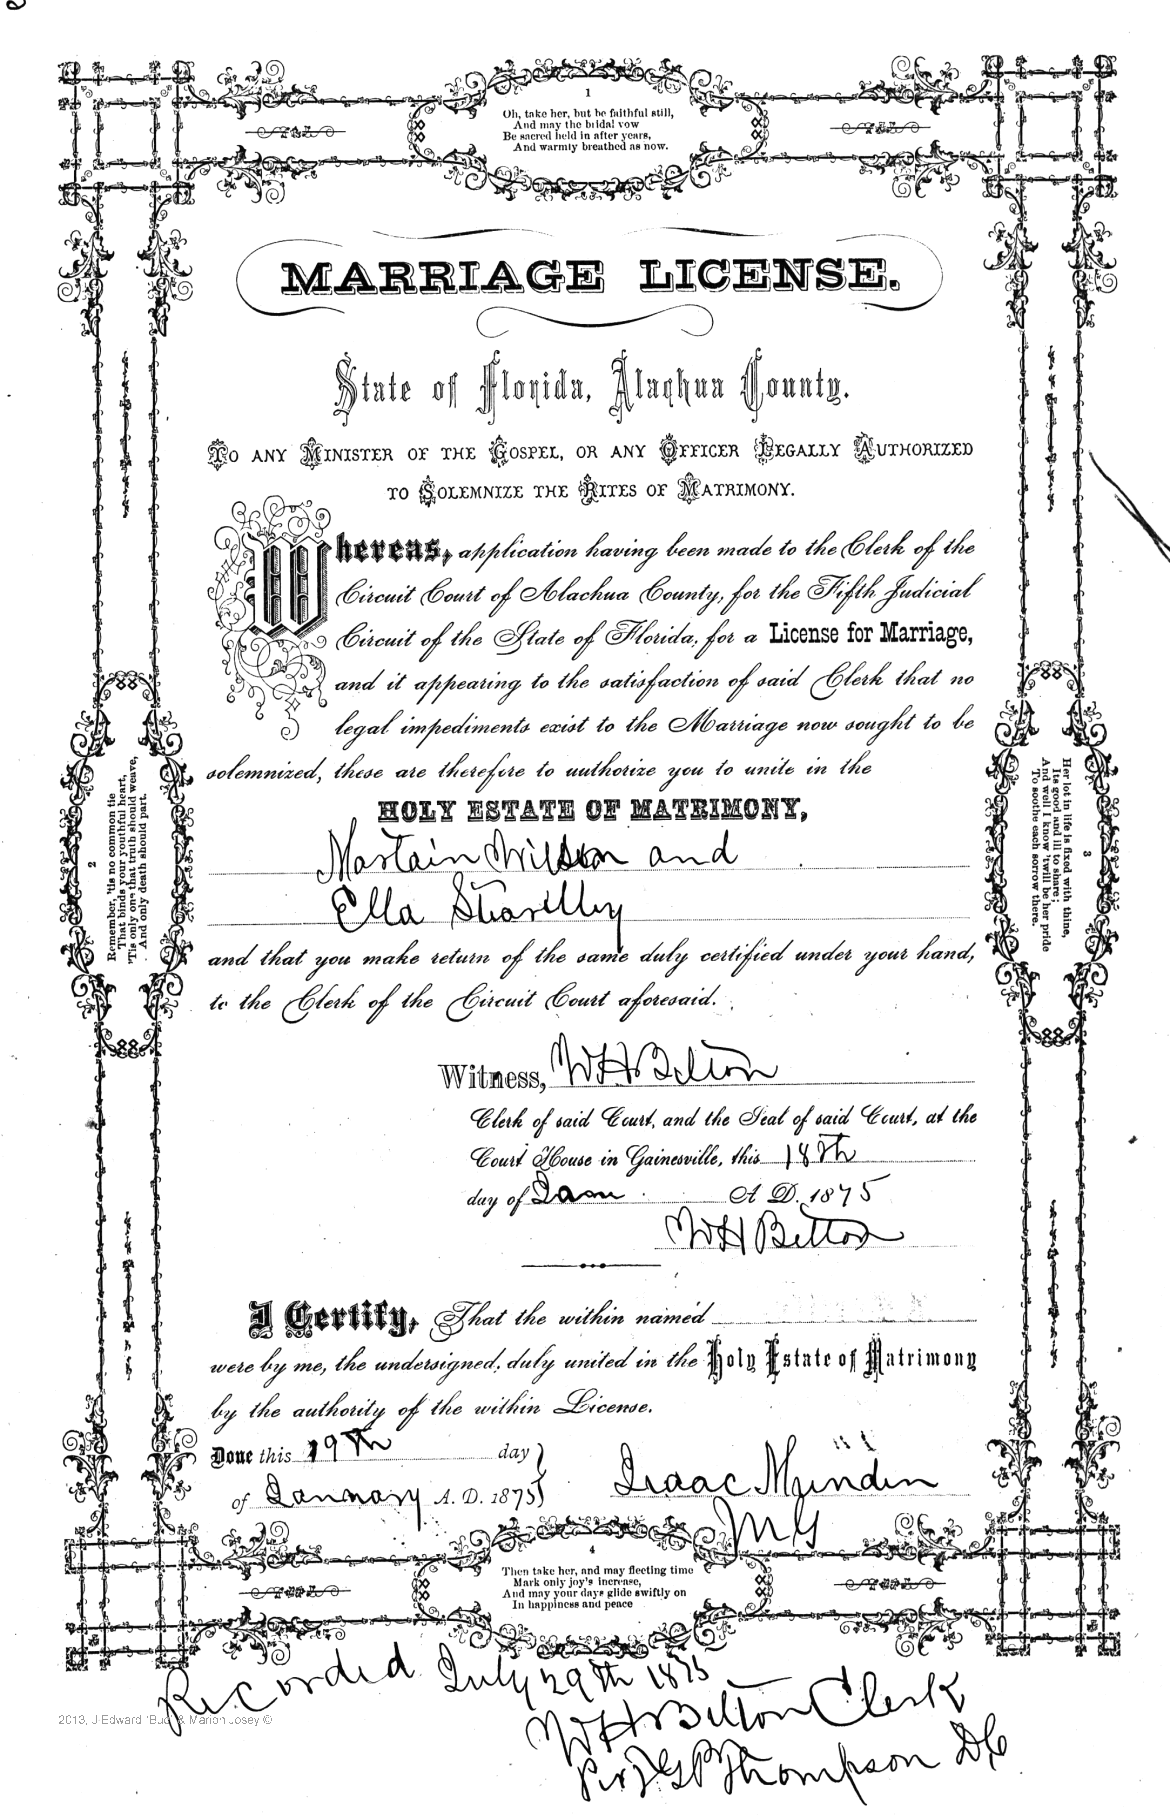 1
Oh, take her, but be faithful still,
And may the bridal vow
Be sacred held in after years,
And warmly breathed as now.
MARRIAGE LICENSE.
State of Florida, Alachua County.
TO ANY MINISTER OF THE GOSPEL, OR ANY OFFICER LEGALLY AUTHORIZED
TO SOLEMNIZE THE RITES OF MATRIMONY.
Whereas, application having been made to the Clerk of the
Circuit Court of Alachua County, for the Fifth Judicial
Circuit of the State of Florida, for a License for Marriage,
and it appearing to the satisfaction of said Clerk that no
legal impediments exist to the Marriage now sought to be
solemnized, these are therefore to authorize you to unite in the
HOLY ESTATE OF MATRIMONY,
Martain Wilson and
Ella
and that you make return of the same duly certified under your hand,
to the Clerk of the Circuit Court aforesaid.
Witness, W H Belton
Clerk of said Court, and the Seal of said Court, at the
Court House in Gainesville, this 18th
day of Jan A. D. 1875
W H Belton
I Certify, That the within named
were by me, the undersigned, duly united in the Holy Estate of Matrimony
by the authority of the within License.
Done this 19th day
of January A. D. 1875
Isaac Mundin
M G
2
Remember, 'tis no common tie
That binds your youthful heart,
'Tis only one that truth should weave,
And only death should part.
3
Her lot in life is fixed with thine,
Its good and ill to share;
And well I know 'twill be her pride
To soothe each sorrow there.
4
Then take her, and may fleeting time
Mark only joy's increase,
And may your days glide swiftly on
In happiness and peace
Recorded July 29th 1875
W H Belton Clerk
Thompson DC
2013, J Edward "Bud" & Marion Josey ©